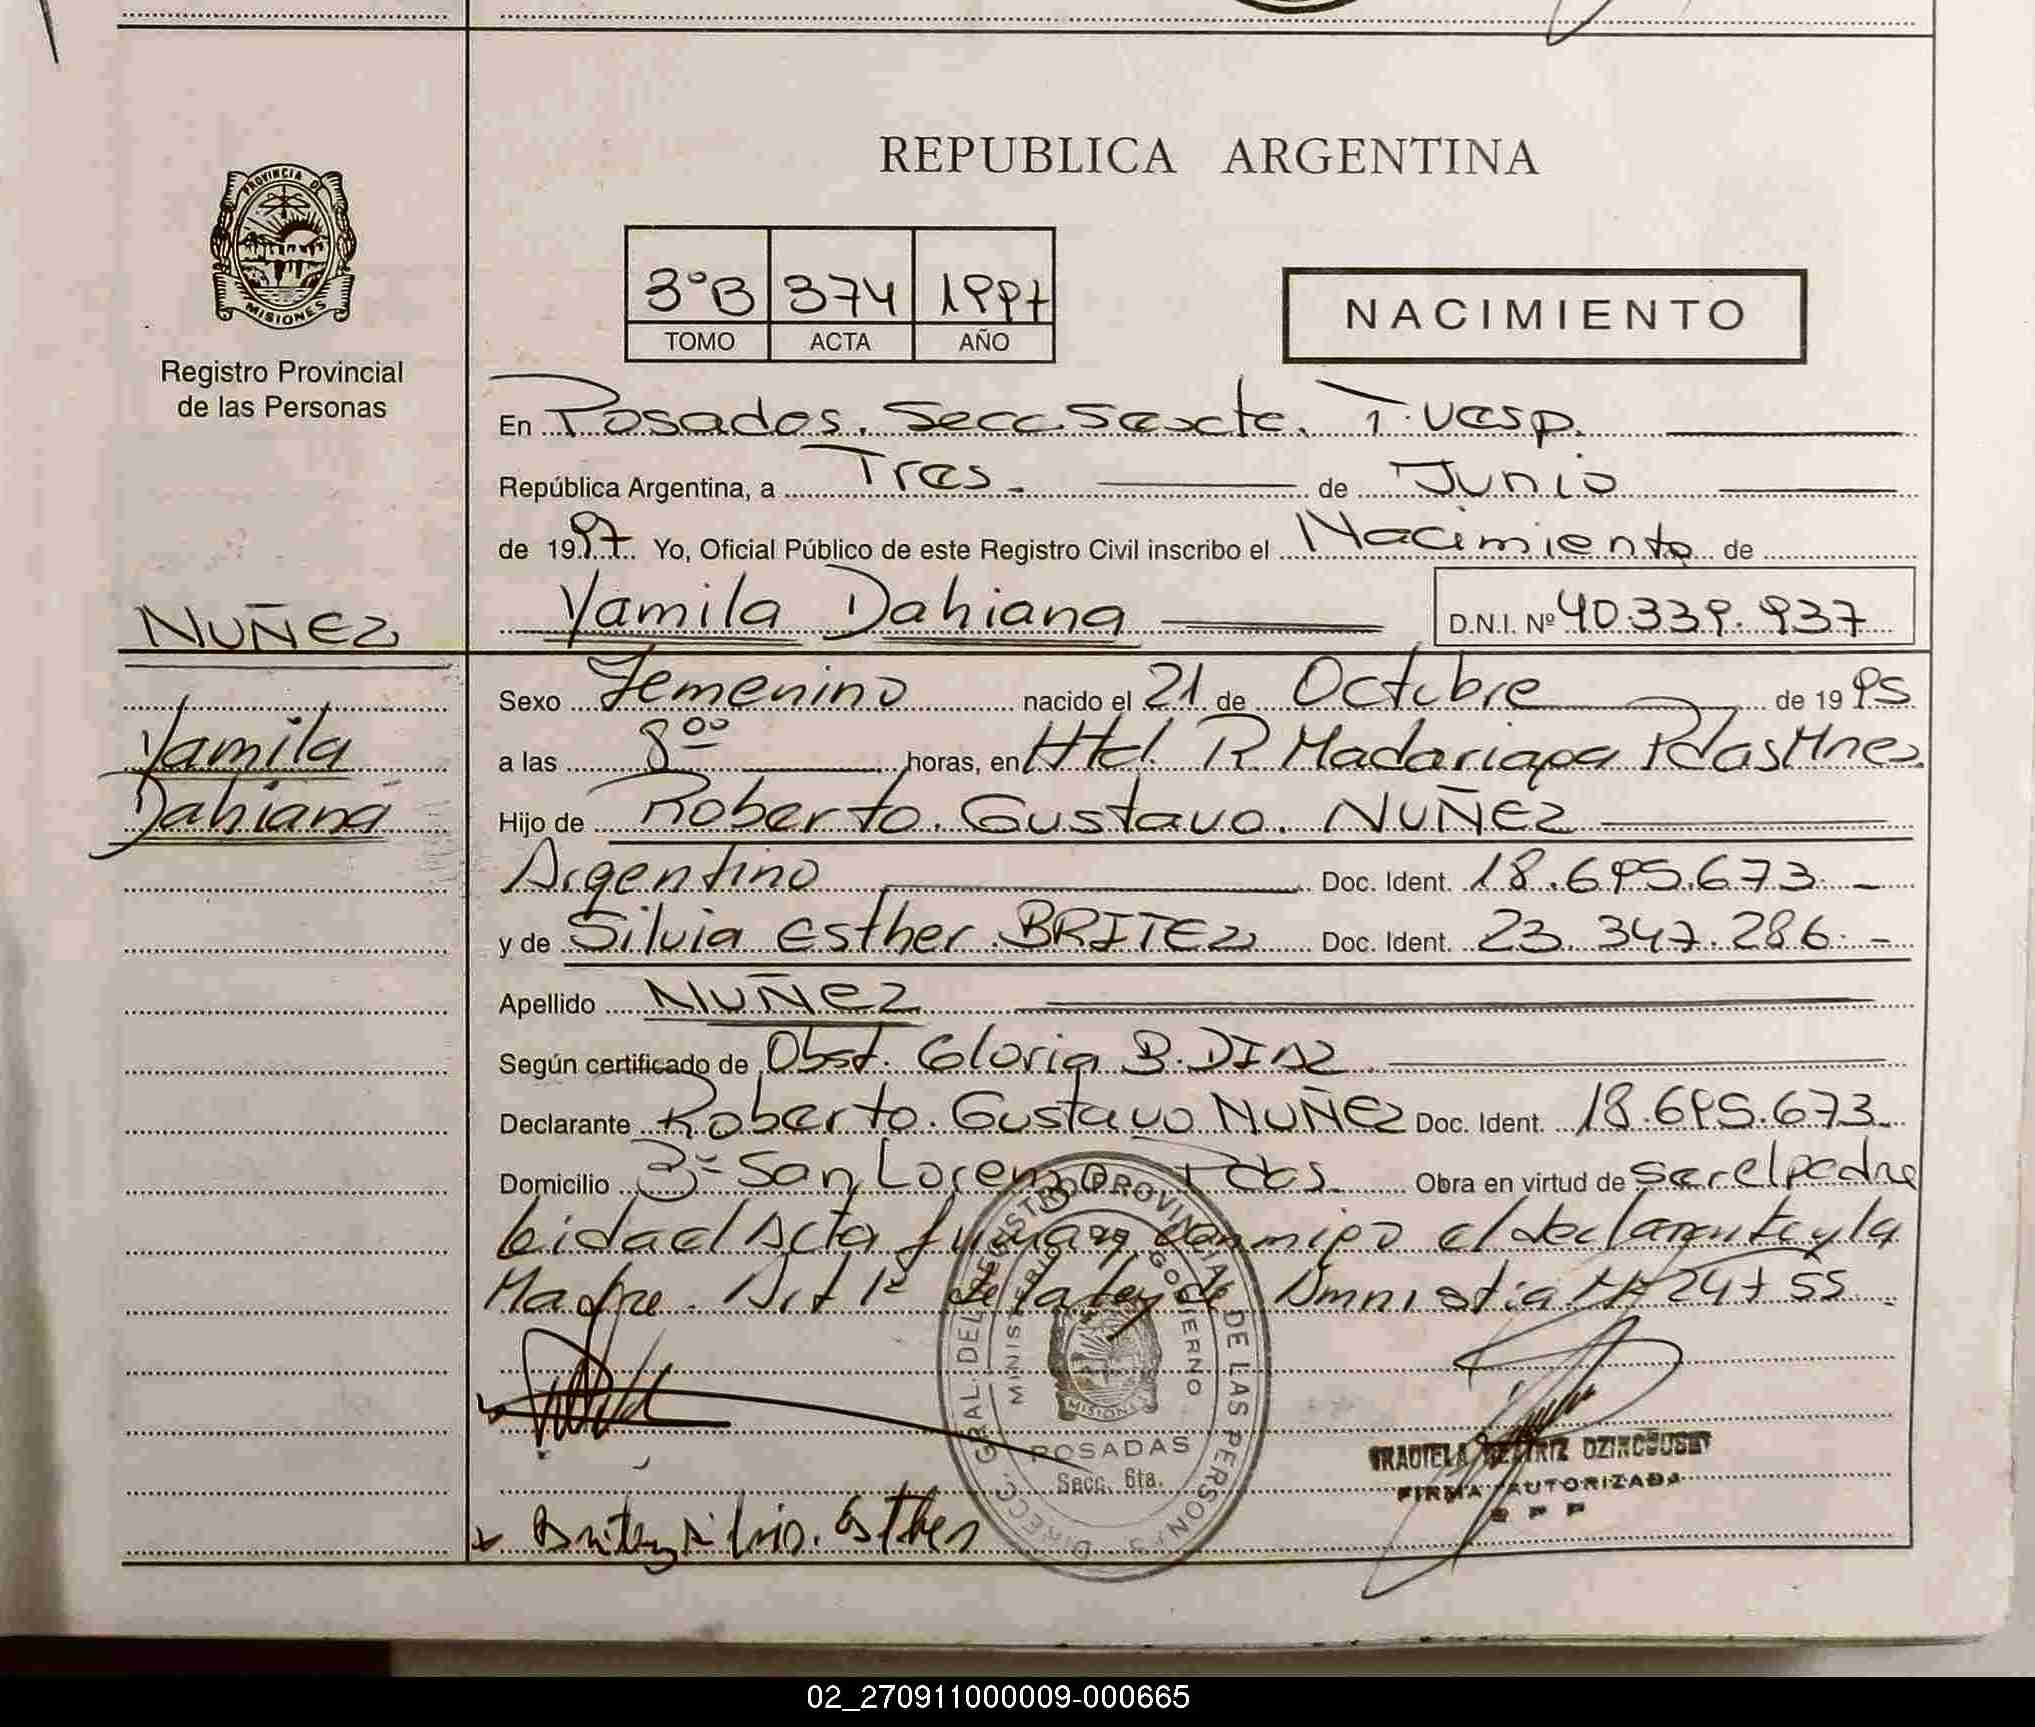 REPUBLICA ARGENTINA
PROVINCIA DE
MISIONES
Registro Provincial
de las Personas
3ºB 374 1997
TOMO ACTA AÑO
NACIMIENTO
En Posadas. Secc. Sexta. T. Vesp.
República Argentina, a Tres. de Junio
de 1997. Yo, Oficial Público de este Registro Civil inscribo el Nacimiento de
NUÑEZ
Yamila Dahiana
D.N.I. Nº 40.339.937
Sexo Femenino nacido el 21 de Octubre de 1995
Yamila
a las 8ºº horas, en Htal. R Madariaga Pdas Mnes.
Dahiana
Hijo de Roberto. Gustavo. NUÑEZ
Argentino Doc. Ident. 18.695.673.
y de Silvia Esther. BRITEZ Doc. Ident. 23.347.286.
Apellido NUÑEZ
Según certificado de Obst. Gloria B. DIAZ
Declarante Roberto. Gustavo NUÑEZ Doc. Ident. 18.695.673.
Domicilio Bº San Lorenzo Pdas. Obra en virtud de ser el padre
leida el Acta firman conmigo el declarante y la
Madre. Art 1º de la ley de Amnistia Nº 24755.
DIRECC. GRAL. DEL REGISTRO PROVINCIAL DE LAS PERSONAS
MINISTERIO GOBIERNO
MISIONES
POSADAS
Secc. 6ta.
BEATRIZ
FIRMA AUTORIZADA
Britez Silvia. Esther
02_270911000009-000665